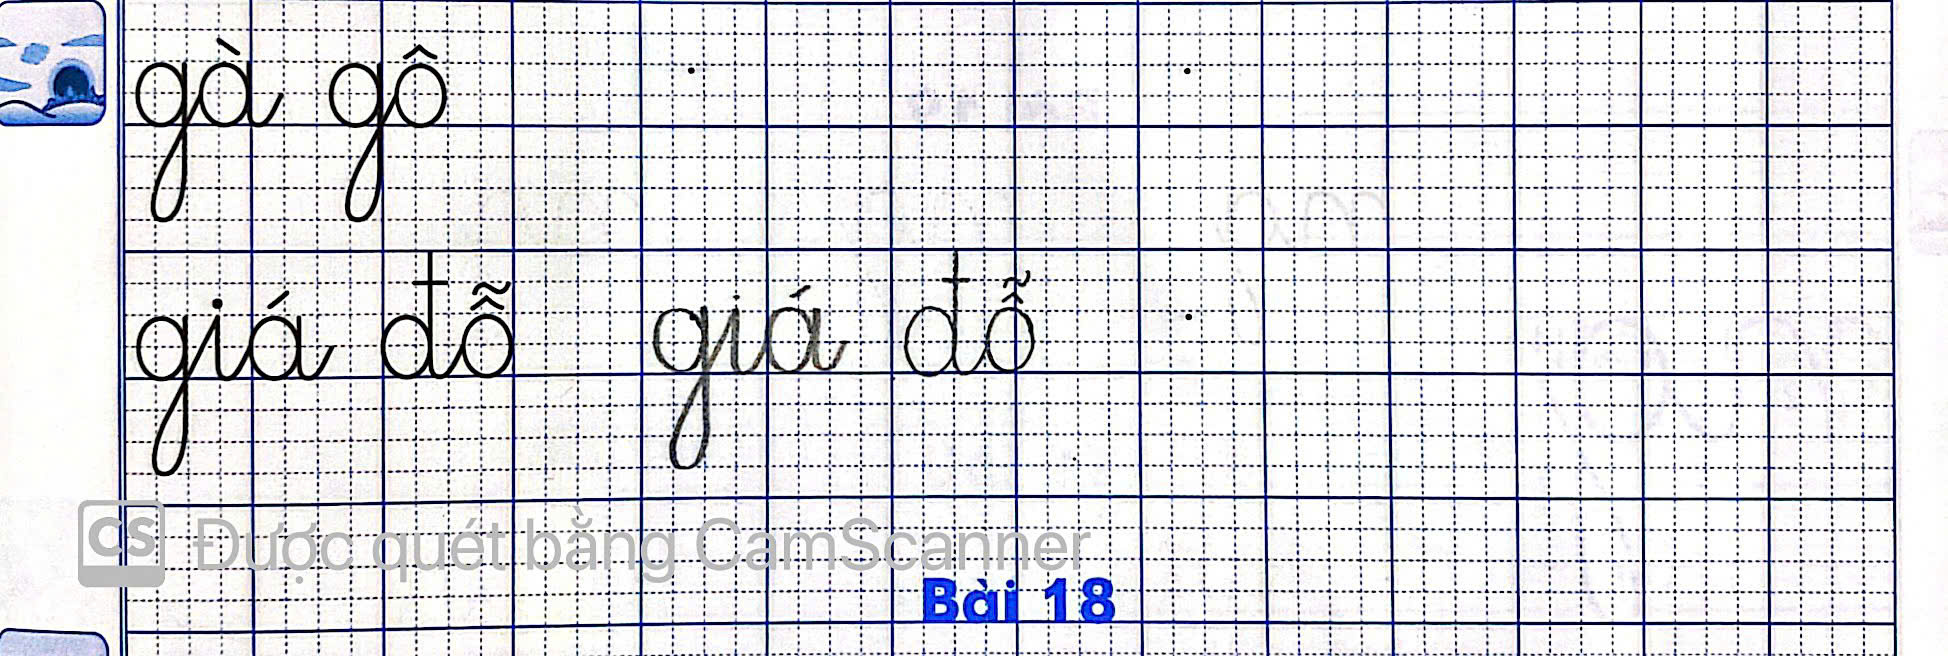 gà gô
giá đỗ giá đỗ
CS Được quét bằng CamScanner
Bài 18